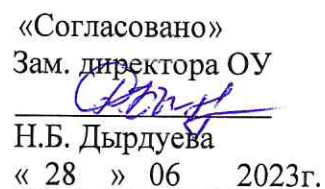 «Согласовано»
Зам. директора ОУ
Н.Б. Дырдуева
« 28 » 06 2023г.